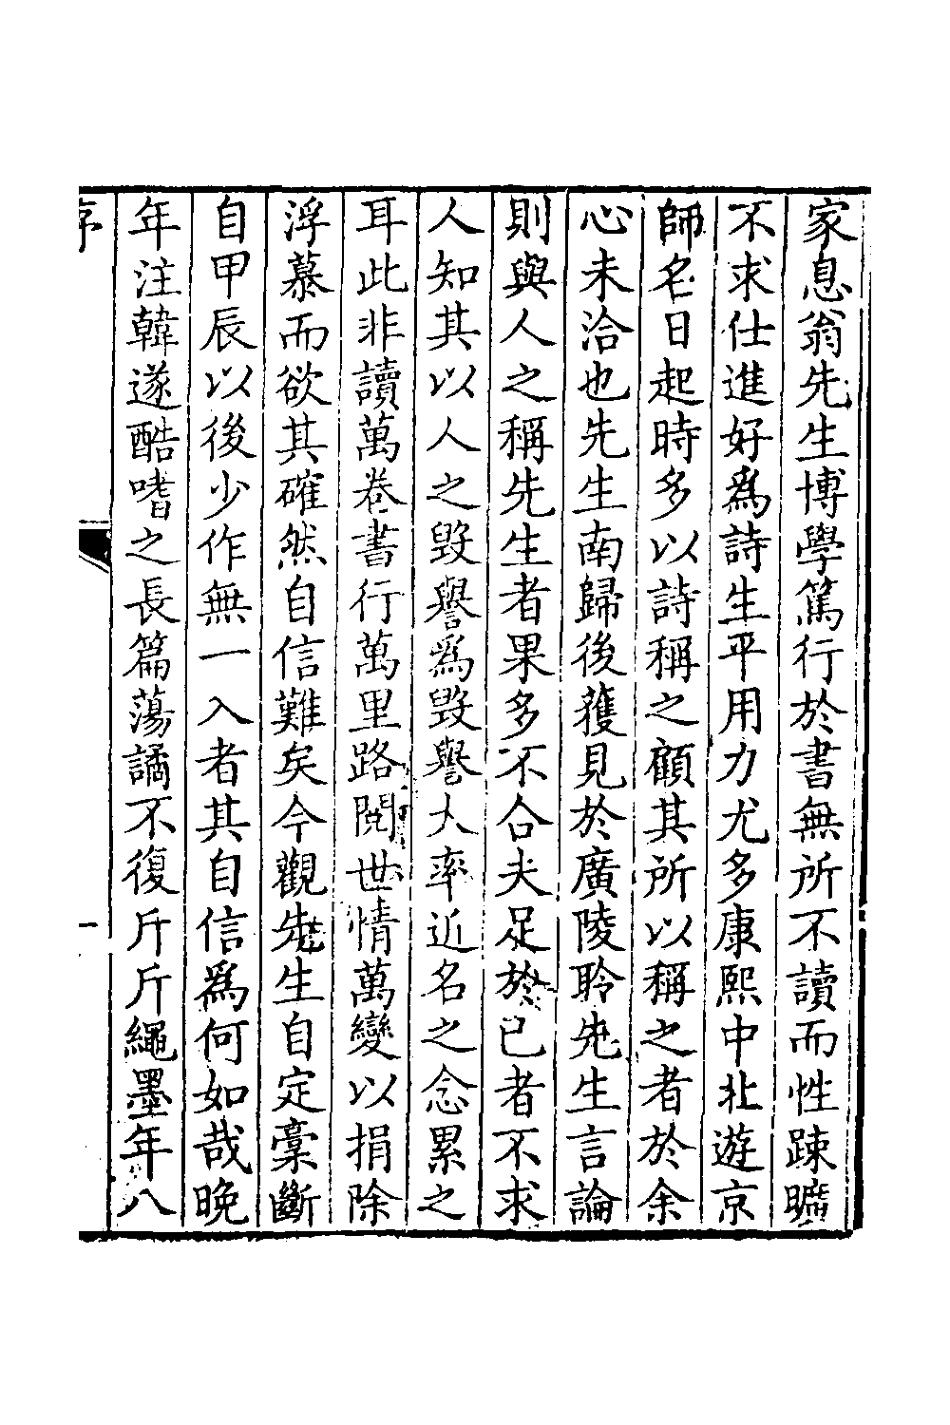 家息翁先生博學篤行於書無所不讀而性踈曠
不求仕進好爲詩生平用力尤多康熙中北遊京
師名日起時多以詩稱之顧其所以稱之者於余
心未洽也先生南歸後獲見於廣陵聆先生言論
則與人之稱先生者果多不合夫足於已者不求
人知其以人之毀譽爲毀譽大率近名之念累之
耳此非讀萬卷書行萬里路閱世情萬變以捐除
浮慕而欲其確然自信難矣今觀先生自定稾斷
自甲辰以後少作無一入者其自信爲何如哉晚
年注韓遂酷嗜之長篇蕩譎不復斤斤繩墨年八
序
一